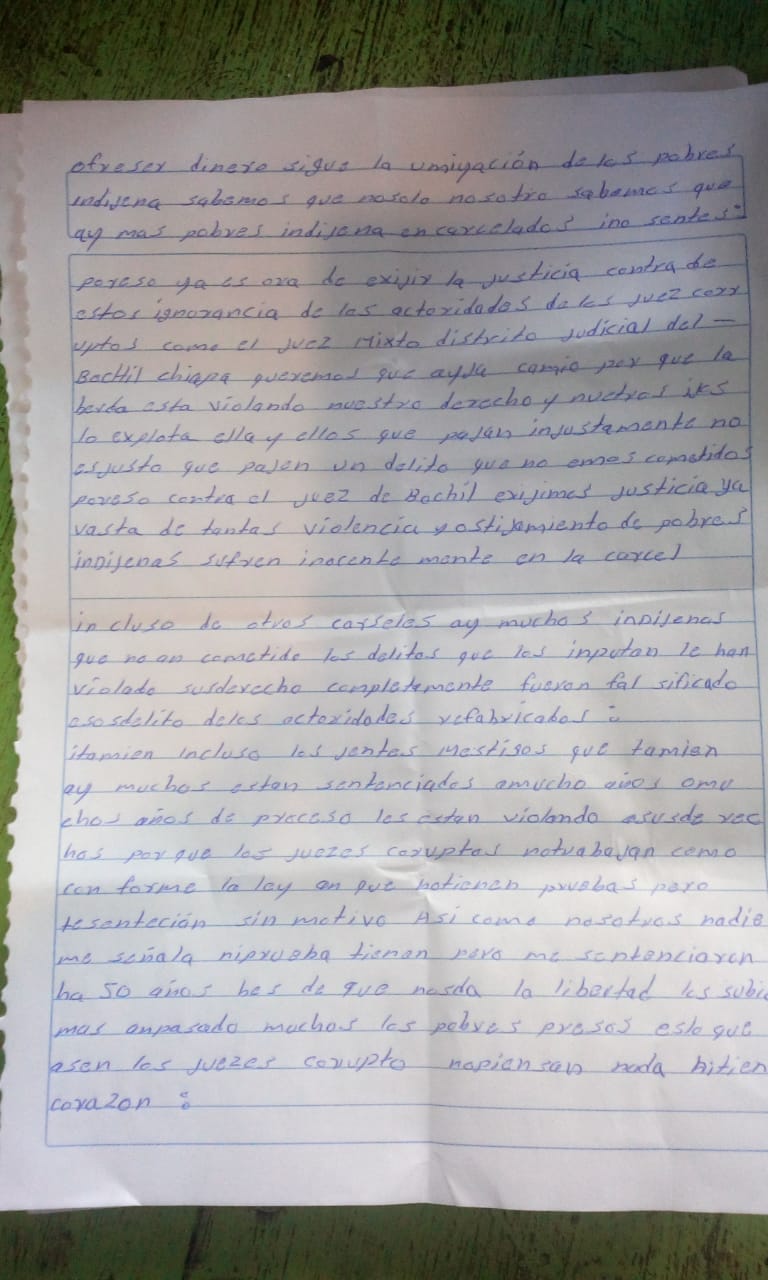 ofreser dinero sigue la umiyación de los pobres
indijena sabemos que nosolo nosotro sabemos que
ay mas pobres indijena encarcelados ino sentes:
poreso ya es ora de exijir la justicia contra de
estos ignorancia de las actoridades de les juez corr
uptos como el juez Mixto distrito judicial del -
Bochil chiapa queremos que ayga camio por que la
berda esta violando nuestro derecho y nuetros
lo explota ella y ellos que pajan injustamente no
esjusto que pajen un delito que no emos cometidos
poreso contra el juez de Bochil exijimos justicia ya
vasta de tantas violencia y ostijamiento de pobres
indijenas sufren inocente mente en la carcel
in cluso de otros carseles ay muchos indijenas
que no an cometido los delitos que los inputan le han
violado susderecho completamente fueron fal sificado
esosdelito deles actoridades refabricados :
itamien incluso les jentes mestisos que tamien
ay muchos estan sentenciados amucho años omu
chos años de proceso les estan violando asusde rec
hos por que los juezes coruptos notrabajan como
con forme la ley en que notienen pruebas pero
tesenteción sin motivo Asi como nosotros nadie
me señala niprueba tienen pero me sentenciaron
ha 50 años bes de que nosda la libertad les subio
mas anpasado muchos los pobres presos eslo que
asen los juezes corupto nopiensan nada nitien
corazon :